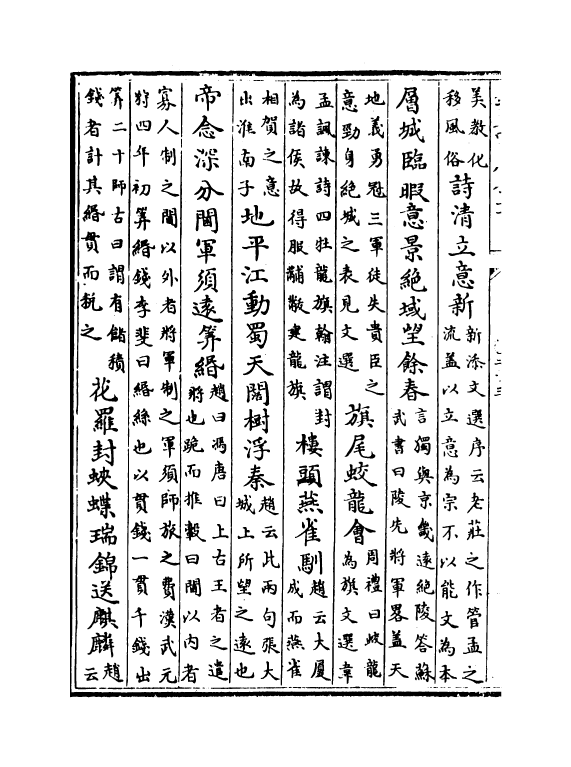 美教化
移風俗
詩清立意新
新添文選序云老莊之作管孟之
流蓋以立意為宗不以能文為本
層城臨暇意景絶域望餘春
言獨與京畿遠絶陵答蘇
武書曰陵先將軍畧蓋天
地義勇冠三軍徒失貴臣之
意勁身絶域之表見文選
旗尾蛟龍會
周禮曰蛟龍
為旗文選韋
孟諷諫詩四牡龍旗翰注謂封
為諸侯故得服黼黻建龍旗
樓頭燕雀馴
趙云大厦
成而燕雀
相賀之意
出淮南子
地平江動蜀天闊樹浮秦
趙云此兩句張大
城上所望之遠也
帝念深分閫軍須遠筭緡
趙曰馮唐曰上古王者之遣
將也跪而推轂曰閫以內者
寡人制之閫以外者將軍制之軍須師旅之費漢武元
狩四年初筭緡錢李斐曰緡絲也以貫錢一貫千錢出
筭二十師古曰謂有儲積
錢者計其緡貫而税之
花羅封蛺蝶瑞錦送麒麟
趙
云